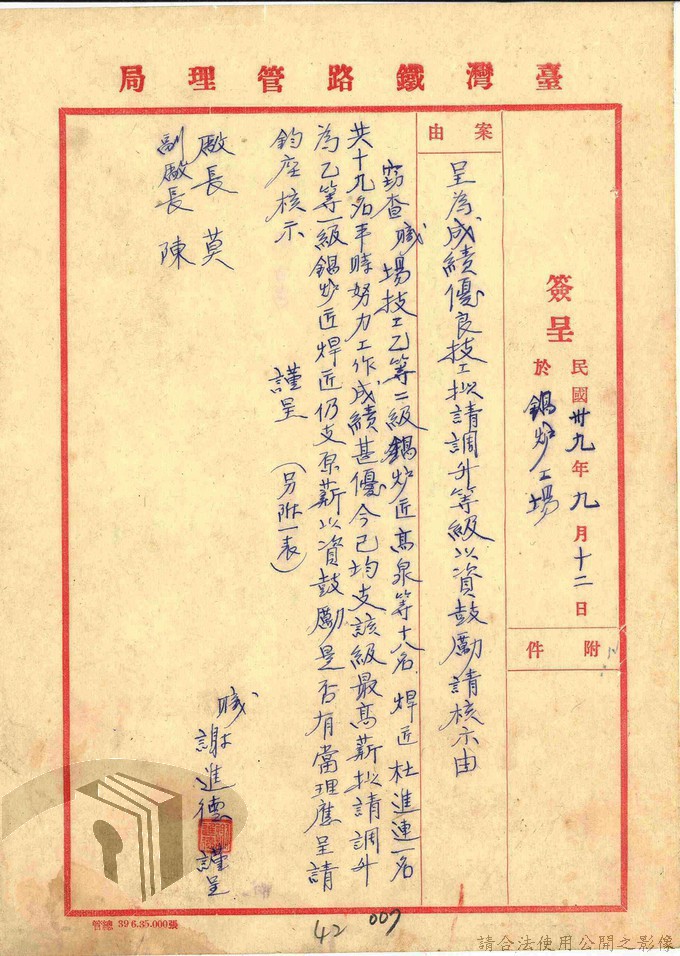 臺灣鐵路管理局
簽呈 民國卅九年九月十二日
於鍋炉工場
附件
案由
呈為成績優良技工拟請調升等級以資鼓勵請核示由
窃查職場技工乙等二級鍋炉匠高泉等十八名焊匠杜進連一名
共十九名平時努力工作成績甚優今已均支該級最高薪拟請調升
為乙等一級鍋炉匠焊匠仍支原薪以資鼓勵是否有當理應呈請
鈞座核示
謹呈 (另附一表)
廠長 莫
副廠長 陳
職 謝進德 謹呈
管總 39.6.35.000張
42 007
請合法使用公開之影像